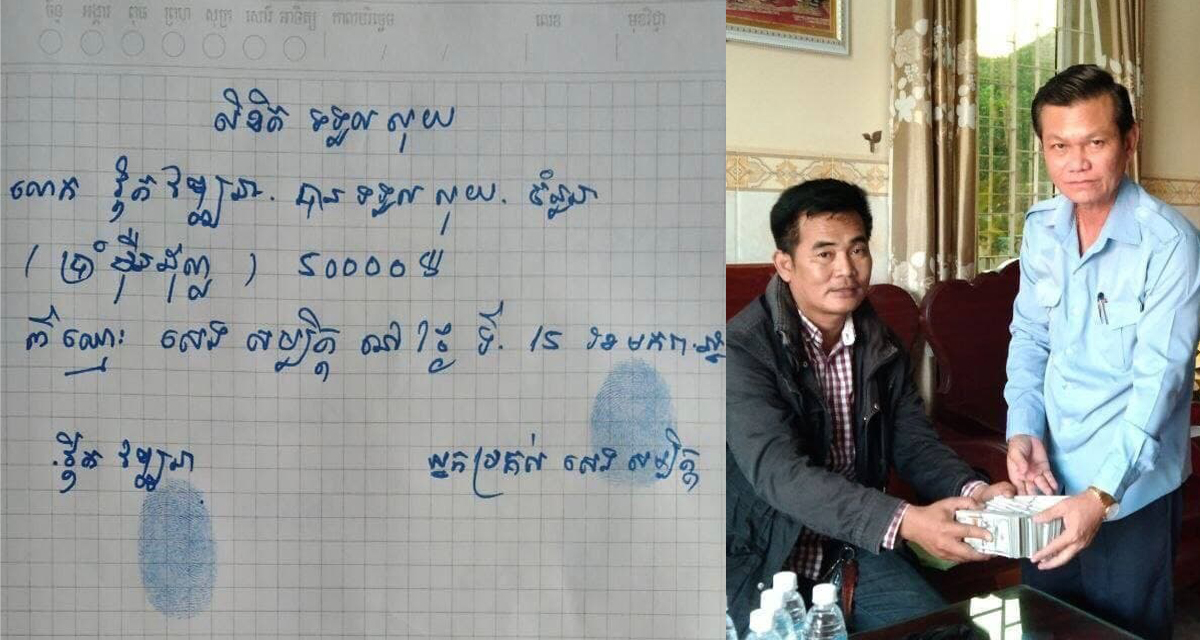 ច័ន្ទ អង្គារ ពុធ ព្រហ សុក្រ សៅរ៍ អាទិត្យ កាលបរិច្ឆេទ លេខ មុខវិជ្ជា
លិខិត ទទួល លុយ
លោក វុឌ្ឍនា. បាន ទទួល លុយ. ចំនួន
( ប្រាំ ម៉ឺនដុល្លា ) 50000$
ពី ឈ្មោះ សេង សម្បត្តិ នៅ ថ្ងៃ ទី. 15 ខែ មករា
អ្នកប្រគល់ សេង សម្បត្តិ